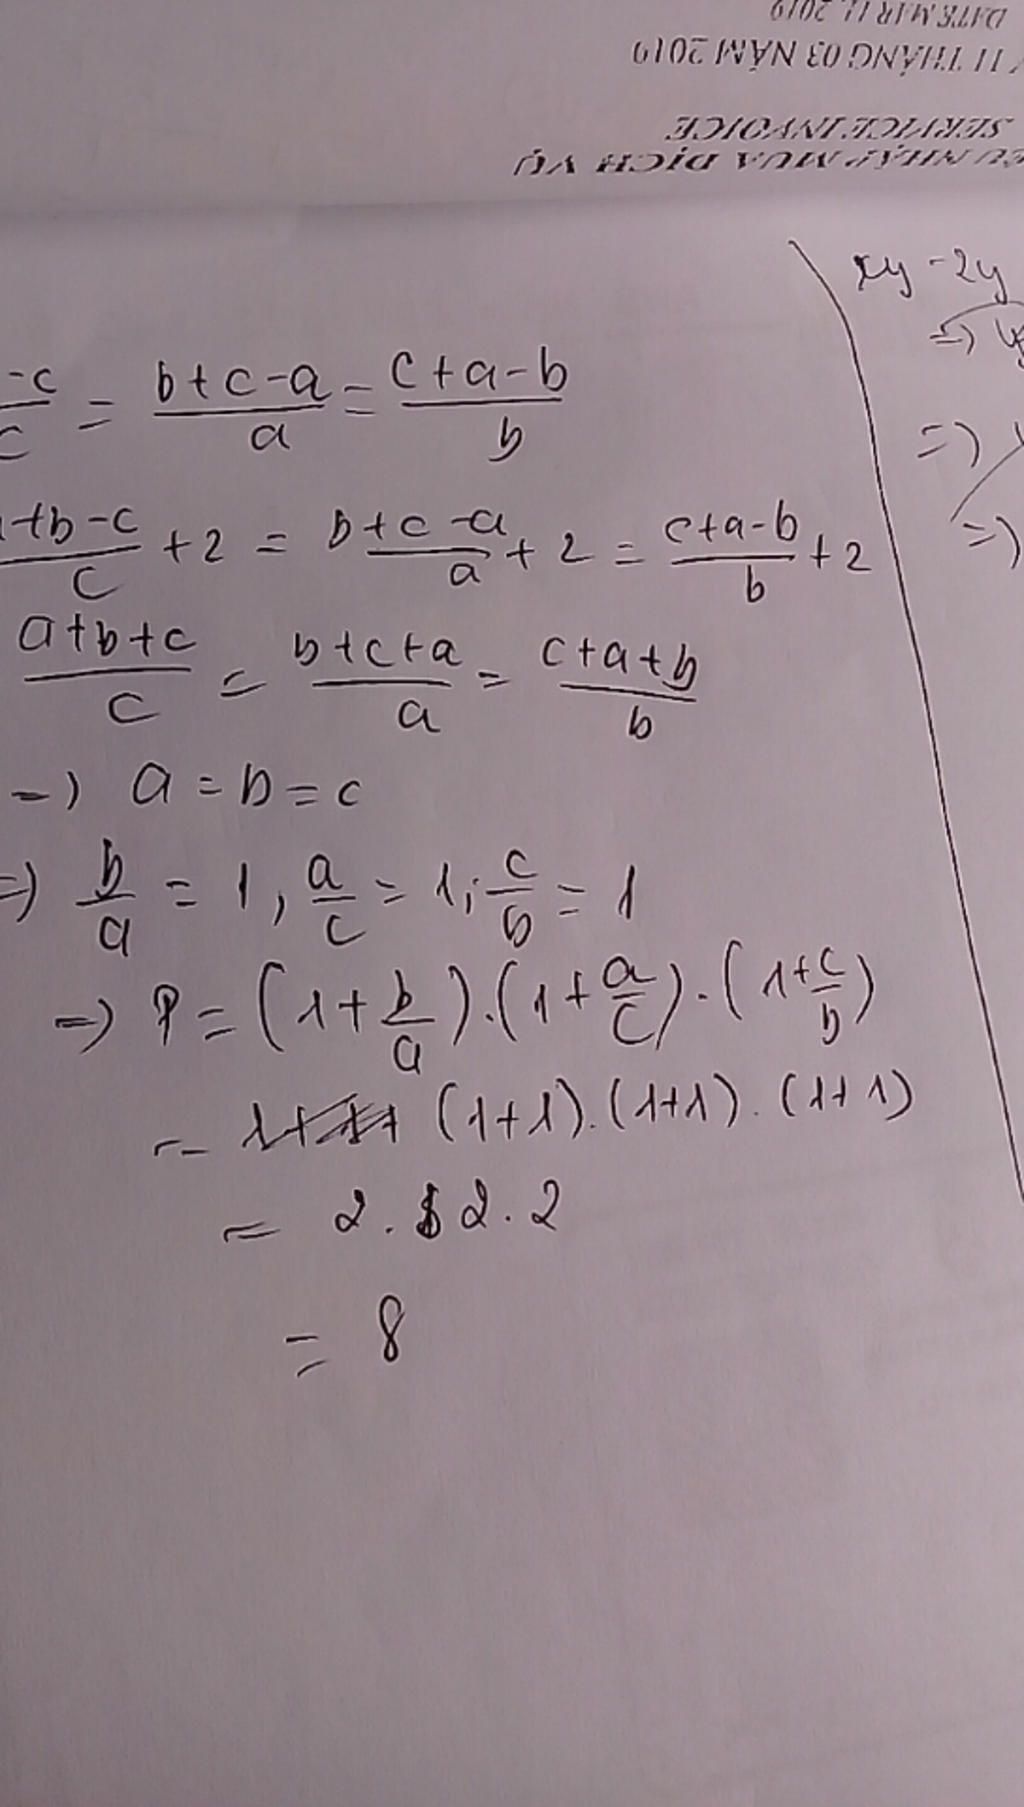 DATE MAR 11, 2019
11 THÁNG 03 NĂM 2019
SERVICE INVOICE
NHẬP MUA DỊCH VỤ
-c/c = (b+c-a)/a = (c+a-b)/b
(+b-c)/c + 2 = (b+c-a)/a + 2 = (c+a-b)/b + 2
(a+b+c)/c = (b+c+a)/a = (c+a+b)/b
=) a = b = c
=) b/a = 1, a/c = 1; c/b = 1
=) P = (1+b/a).(1+a/c).(1+c/b)
= (1+1).(1+1).(1+1)
= 2.2.2
= 8
xy - 2y
=)
=)
=)